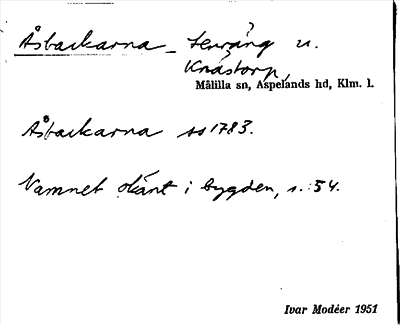 Åsbackarna – terräng u.
Knåstorp,
Målilla sn, Aspelands hd, Klm. l.
Åsbackarna ss 1783.
Namnet okänt i bygden, s. 54.
Ivar Modéer 1951